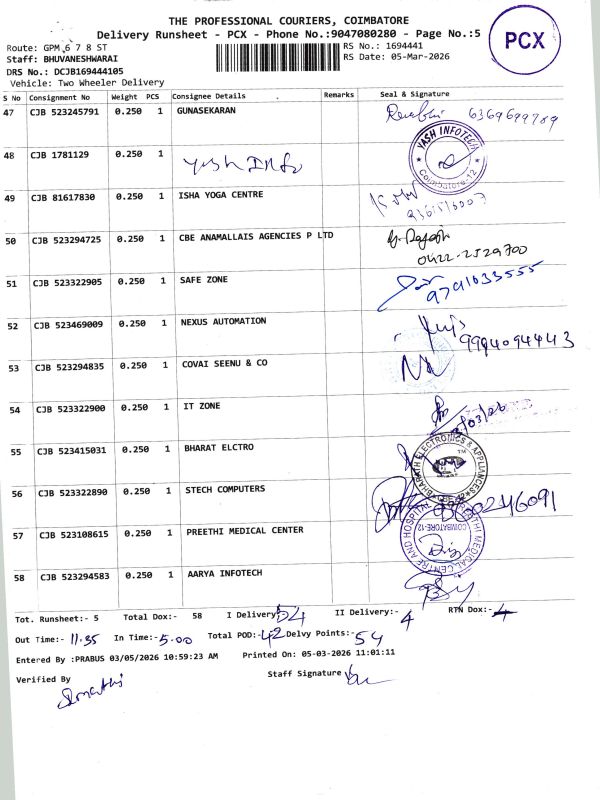 THE PROFESSIONAL COURIERS, COIMBATORE
Delivery Runsheet - PCX - Phone No.:9047080280 - Page No.:5
PCX
Route: GPM 6 7 8 ST
RS No.: 1694441
Staff: BHUVANESHWARAI
RS Date: 05-Mar-2026
DRS No.: DCJB169444105
Vehicle: Two Wheeler Delivery
S No Consignment No Weight PCS Consignee Details Remarks Seal & Signature
47 CJB 523245791 0.250 1 GUNASEKARAN
48 CJB 1781129 0.250 1 Yash Info
YASH INFOTECH Coimbatore-12
49 CJB 81617830 0.250 1 ISHA YOGA CENTRE
50 CJB 523294725 0.250 1 CBE ANAMALLAIS AGENCIES P LTD
0422-2529700
51 CJB 523322905 0.250 1 SAFE ZONE 9791033555
52 CJB 523469009 0.250 1 NEXUS AUTOMATION
9994094443
53 CJB 523294835 0.250 1 COVAI SEENU & CO
54 CJB 523322900 0.250 1 IT ZONE
55 CJB 523415031 0.250 1 BHARAT ELCTRO
BHARATH ELECTRONICS & APPLIANCES CBE
56 CJB 523322890 0.250 1 STECH COMPUTERS
57 CJB 523108615 0.250 1 PREETHI MEDICAL CENTER
PREETHI MEDICAL CENTRE AND HOSPITAL COIMBATORE-12
58 CJB 523294583 0.250 1 AARYA INFOTECH
Tot. Runsheet:- 5 Total Dox:- 58 I Delivery:- 54 II Delivery:- 4 RTN Dox:- 4
Out Time:- 11.35 In Time:- 5.00 Total POD:- 42 Delvy Points:- 54
Entered By :PRABUS 03/05/2026 10:59:23 AM Printed On: 05-03-2026 11:01:11
Verified By Staff Signature